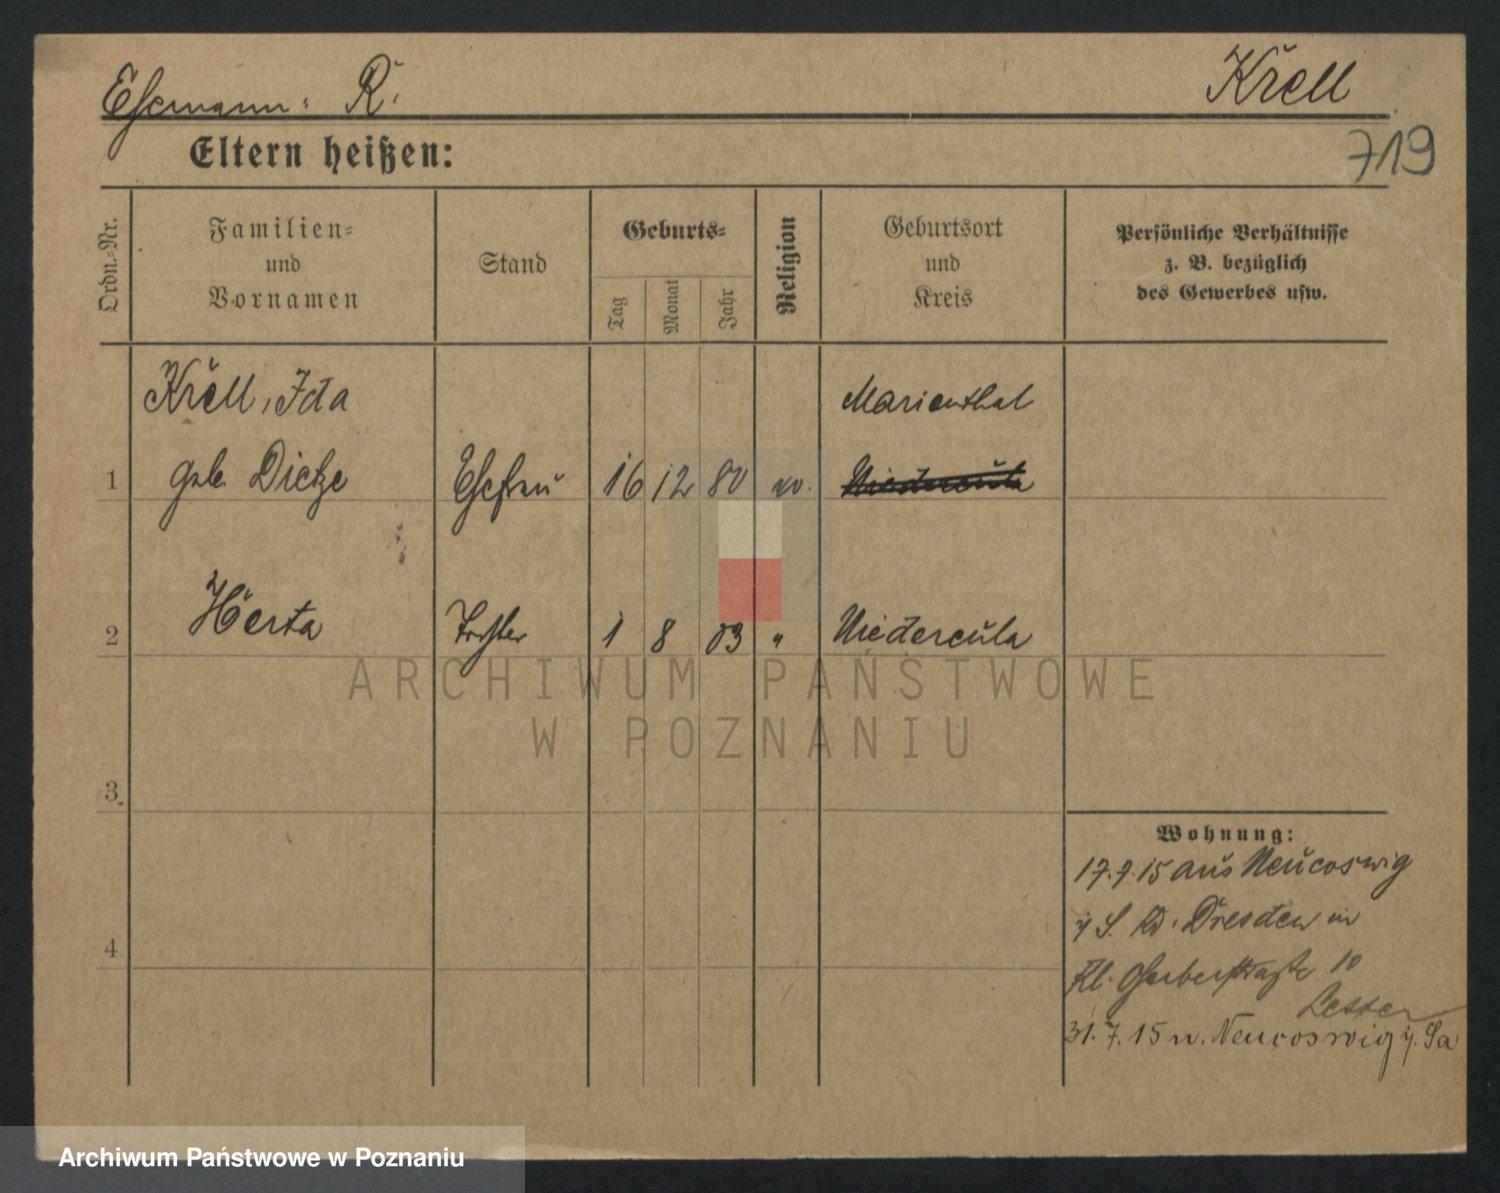 Ehemann: R.
Krell
719
Eltern heißen:
Ordn.-Nr.
Familien-
und
Vornamen
Stand
Geburts-
Tag
Monat
Jahr
Religion
Geburtsort
und
Kreis
Persönliche Verhältnisse
z. B. bezüglich
des Gewerbes usw.
Krell, Ida
Marienthal
1 geb. Dietze Ehefrau 16 12 80 ev. Niedercula
2 Herta Tochter 1 8 03 " Niedercula
ARCHIWUM PAŃSTWOWE
W POZNANIU
3
4
Wohnung:
17.7.15 aus Neucoswig
i/ S. Kr. Dresden in
Kl. Gerberstraße 10
31.7.15 n. Neucoswig i. Sa
Archiwum Państwowe w Poznaniu